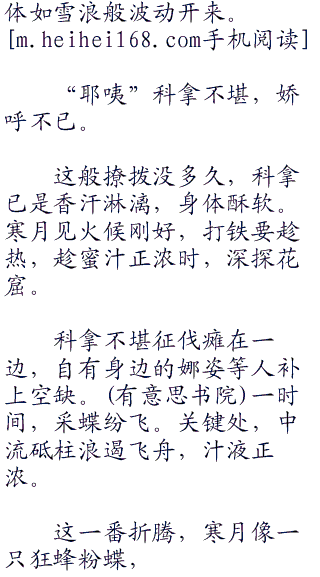 体如雪浪般波动开来。
[m.heihei168.com手机阅读]
“耶咦”科拿不堪，娇
呼不已。
这般撩拨没多久，科拿
已是香汗淋漓，身体酥软。
寒月见火候刚好，打铁要趁
热，趁蜜汁正浓时，深探花
窟。
科拿不堪征伐瘫在一
边，自有身边的娜姿等人补
上空缺。(有意思书院)一时
间，采蝶纷飞。关键处，中
流砥柱浪遏飞舟，汁液正
浓。
这一番折腾，寒月像一
只狂蜂粉蝶，